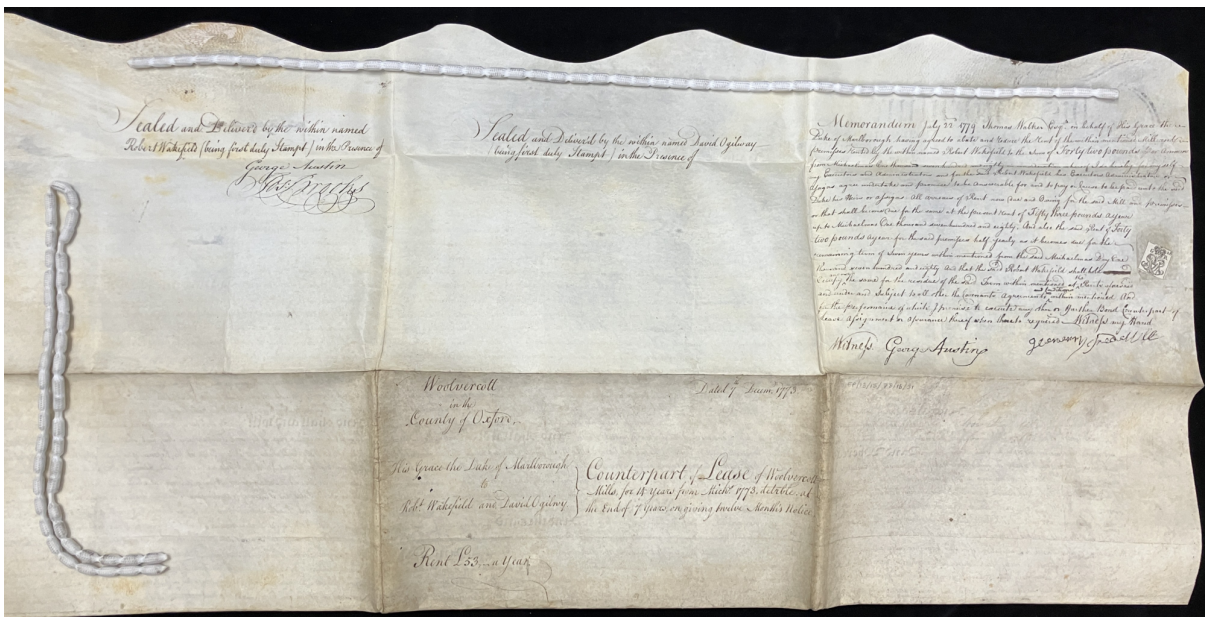 Sealed and Delivered by the within named
Robert Wakefield (being first duly Stampt) in the Presence of
George Austin
Sealed and Deliver'd by the within named David Ogilwy
(being first duly Stampt) in the Presence of
Memorandum July 22d 1779 Thomas Walker Esqr. in behalf of His Grace the
Duke of Marlborough having agreed to abate and reduce the Rent of the within mentioned Mill and
premisses by the within named Robert Wakefield to the Sum of Forty two pounds
from Michaelmas One thousand
my Executors and Administrators and for the said Robert Wakefield his Executors Administrators or
assigns agree undertake and promise to be answerable for and to pay or cause to be paid unto the said
Duke his Heirs or assigns All arrears of Rent now due and Owing for the said Mill and premisses
or that shall become due for the same at the present Rent of Fifty three pounds a year
up to Michaelmas One thousand seven hundred and eighty. And also the said Rent of Forty
two pounds a year for the said premisses half yearly as it becomes due for the
remaining term of Seven years within mentioned from the said Michaelmas Day One
thousand seven hundred and eighty And that the said Robert Wakefield shall hold
Enjoy the same for the residue of the said Term within at the Rent aforesaid
and under and Subject to all other the Covenants Agreements and Conditions within mentioned And
for the performance of which I promise to execute any other or further Bond Counterpart of
Lease Assignment or Assurance hereof when thereto required Witness my Hand
Witness George Austin
Woolvercott
in the
County of Oxford.
Dated 7th Decemr. 1773
His Grace the Duke of Marlborough
to
Robt. Wakefield and David Ogilwy
Counterpart of Lease of Woolvercott
Mills, for 14 Years from Michs. 1773. detrble. at
the End of 7 Years, on giving twelve Month's Notice
Rent £53 a Year